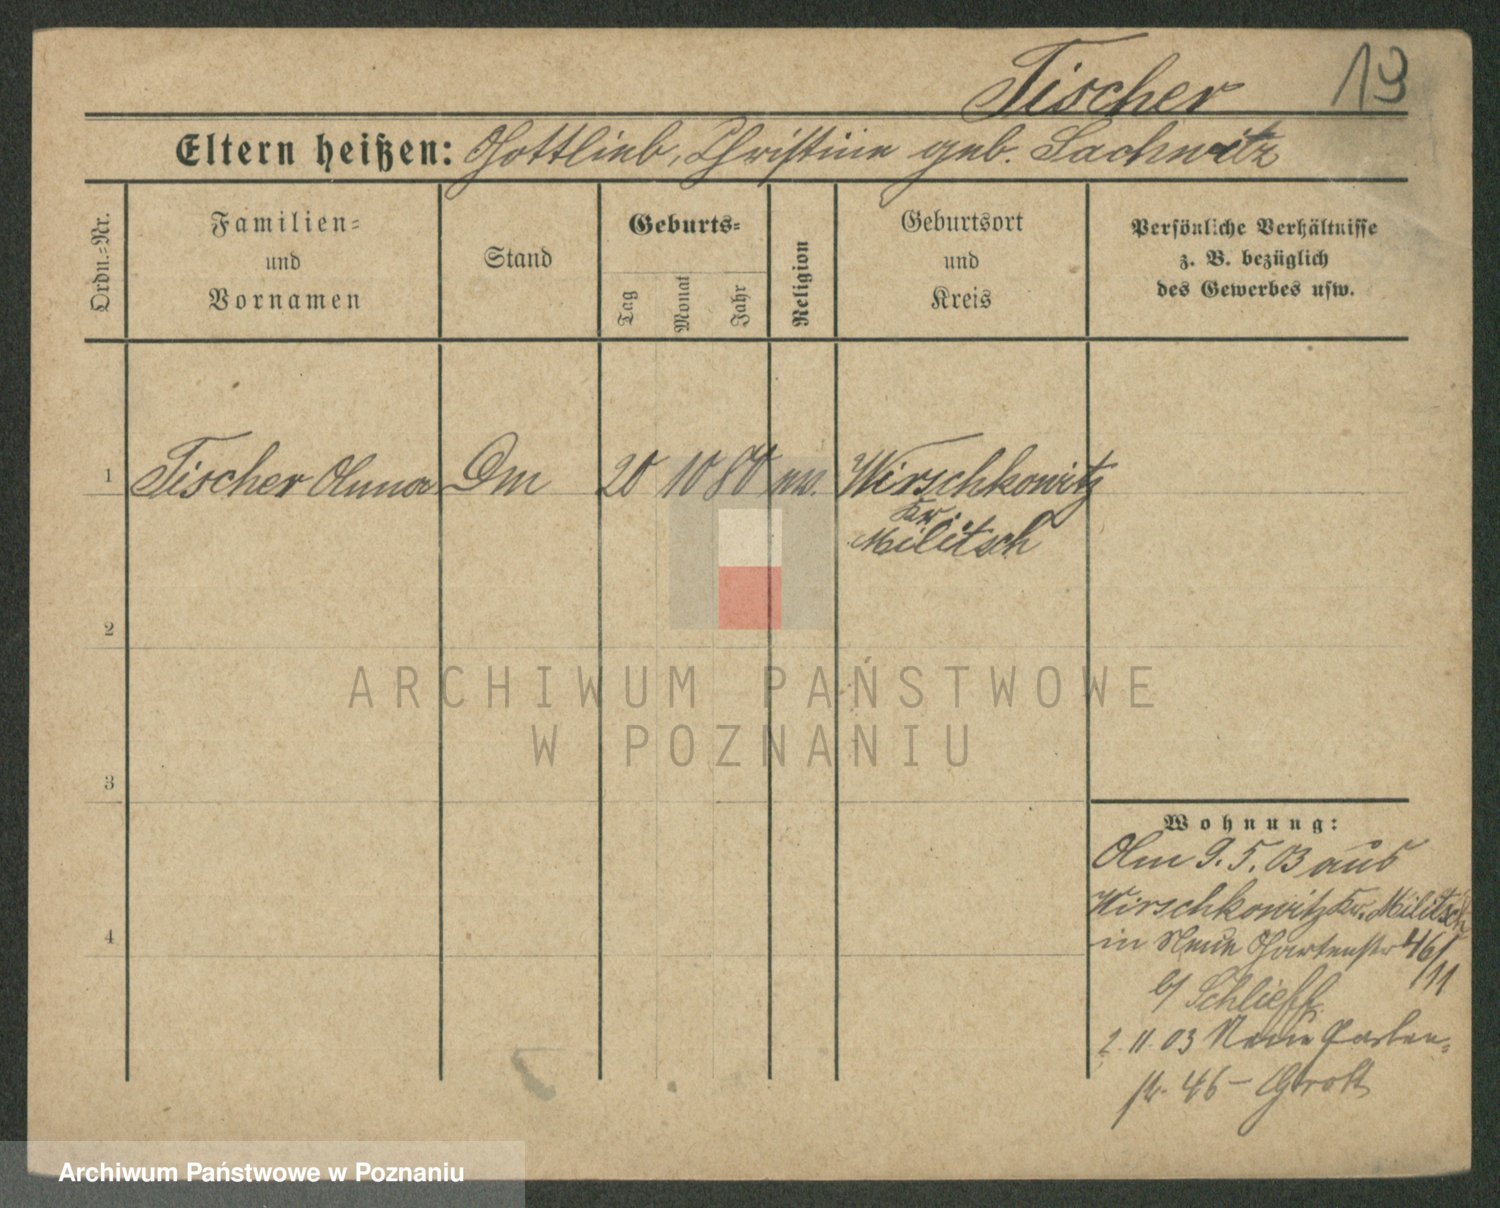 Fischer
19
Eltern heißen: Gottlieb, Christine geb. Sachwitz
Ordn.-Nr.
Familien-
und
Vornamen
Stand
Geburts-
Tag
Monat
Jahr
Religion
Geburtsort
und
Kreis
Persönliche Verhältnisse
z. B. bezüglich
des Gewerbes usw.
1 Fischer Anna Dm 20 10 80 Wirschkowitz
Kr.
Militsch
2
3
4
Wohnung:
Am 9. 5. 03 aus
Wirschkowitz Kr. Militsch
in Neue Gartenstr 46/
11
b/ Schlieff
2. 11. 03 Neue Garten-
str. 46 –
ARCHIWUM PAŃSTWOWE
W POZNANIU
Archiwum Państwowe w Poznaniu